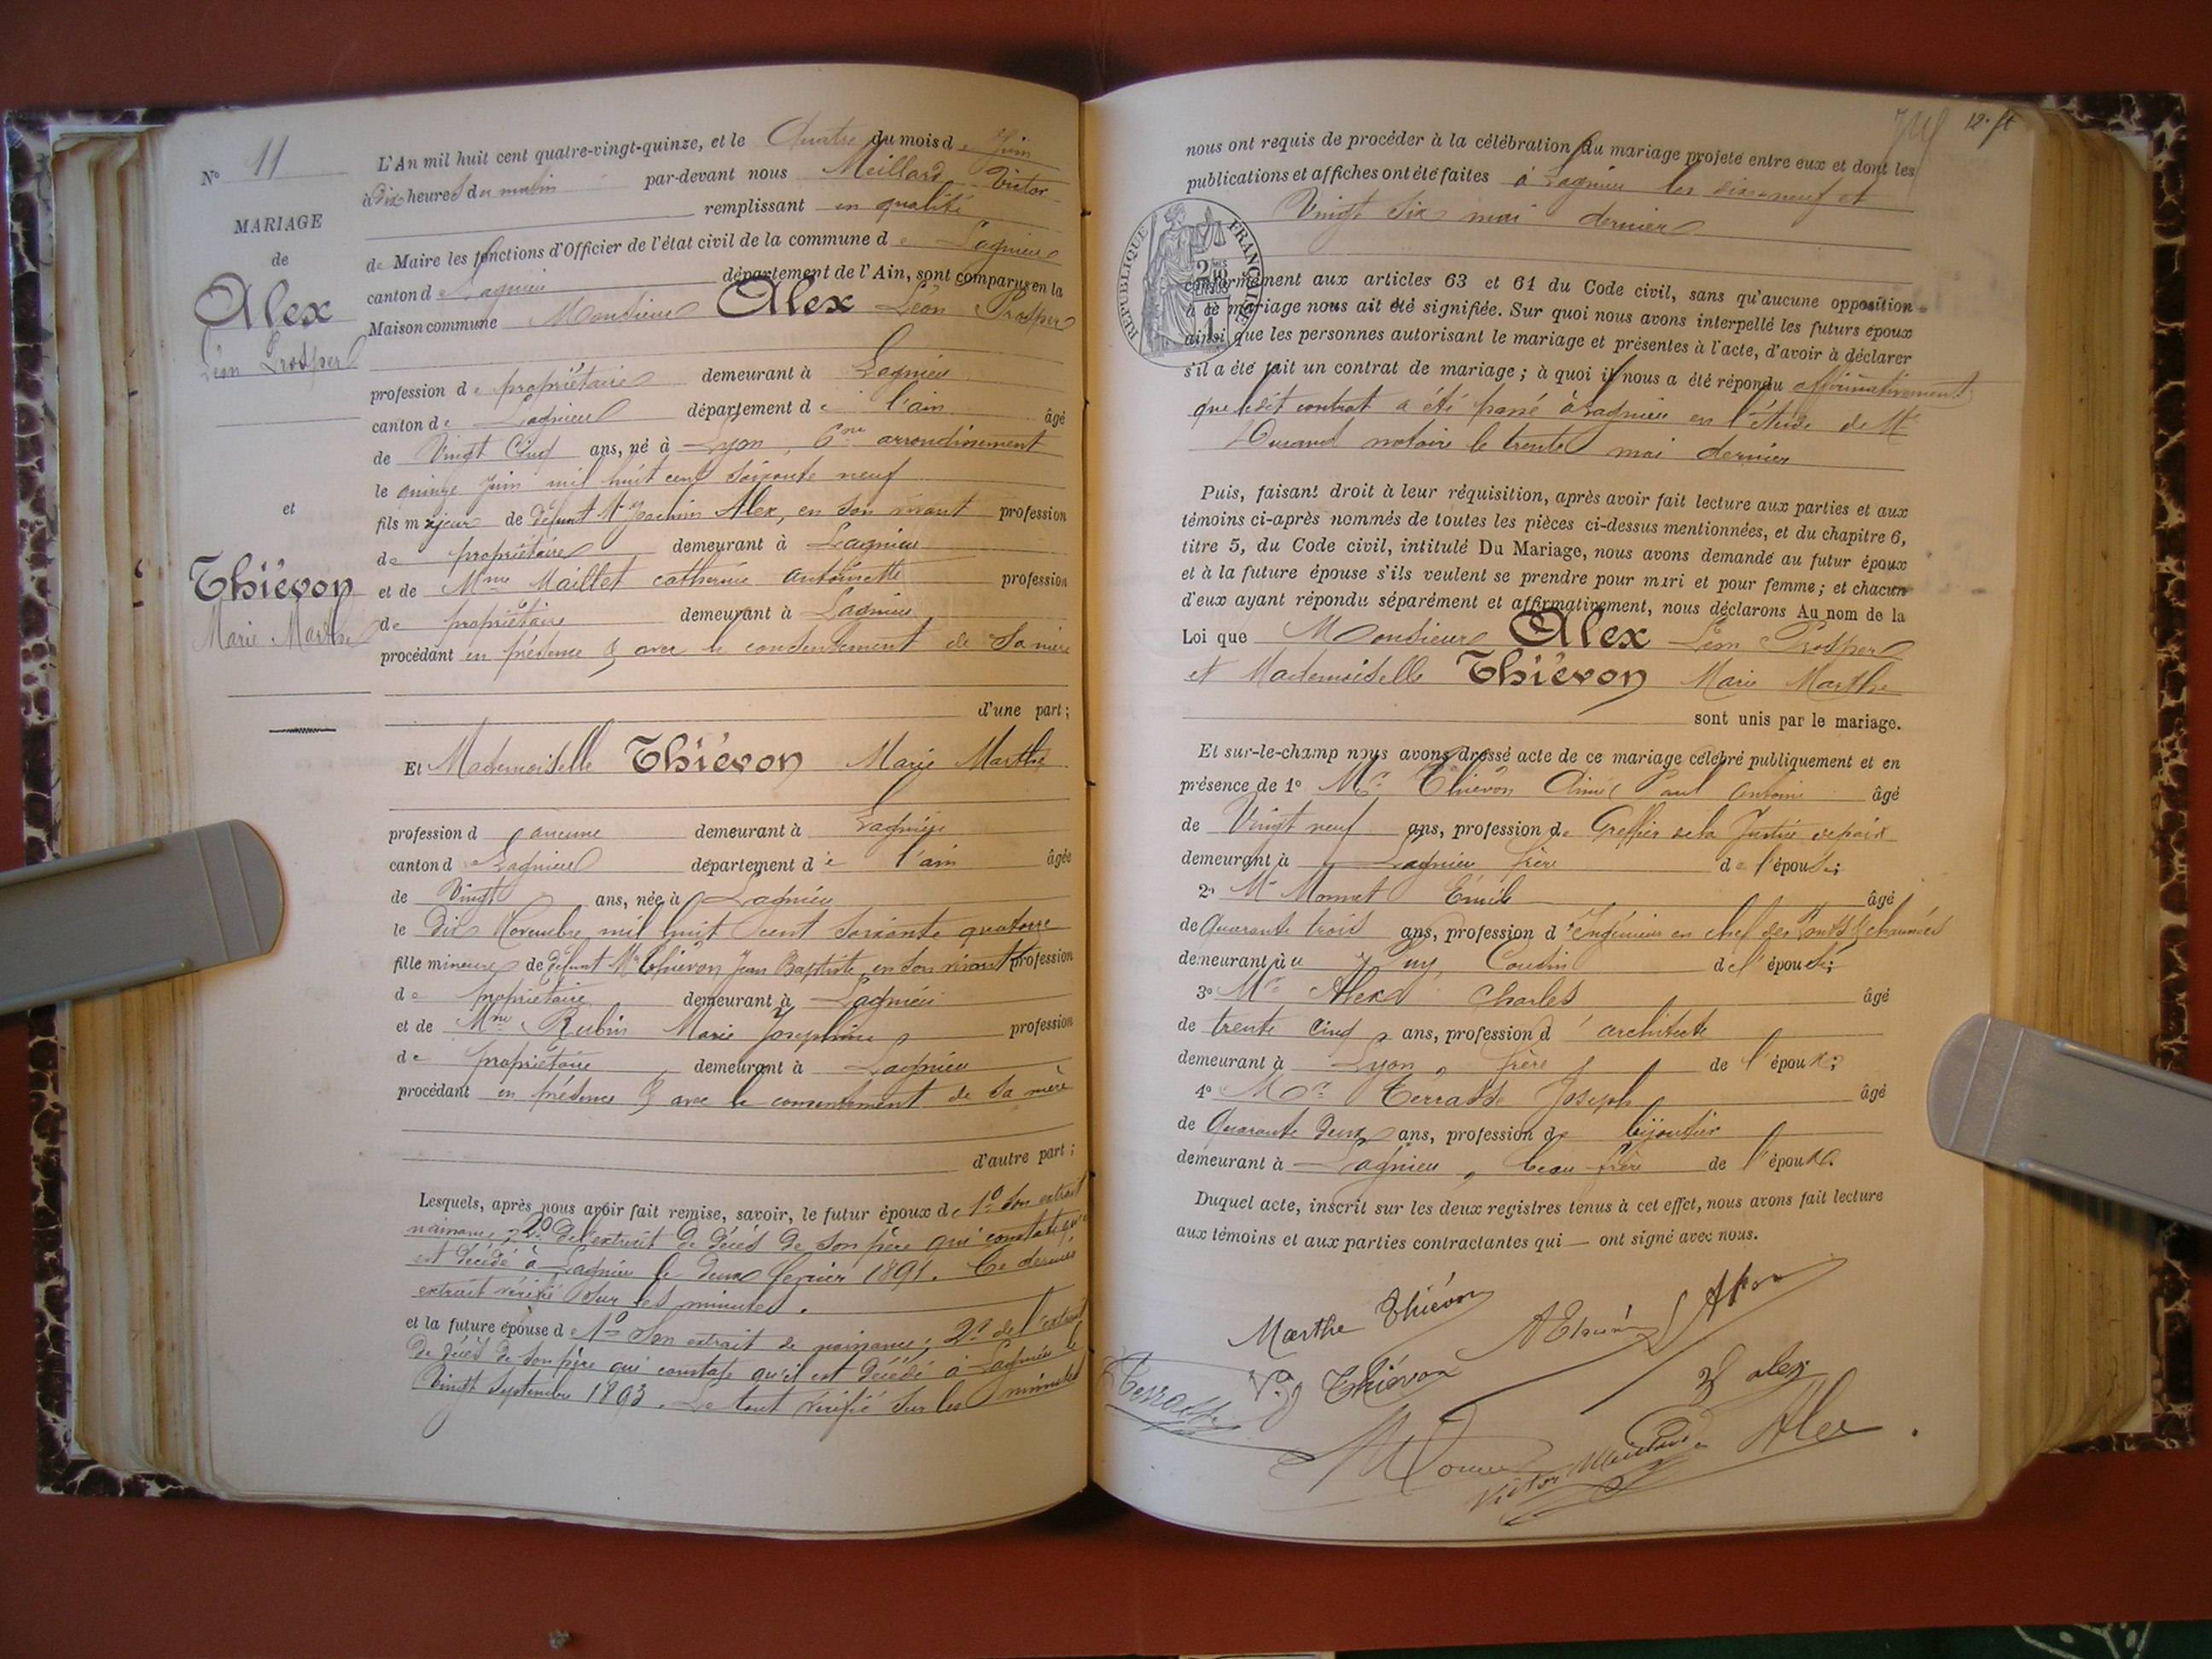 N° 11
MARIAGE
de
Alex
Léon Prosper
et
Thiévon
Marie Marthe
L'An mil huit cent quatre-vingt-quinze, et le Quatre du mois de Juin
à Dix heures du matin par-devant nous Meillard Victor
remplissant en qualité
de Maire les fonctions d'Officier de l'état civil de la commune de Lagnieu
canton de Lagnieu département de l'Ain, sont comparus en la
Maison commune Monsieur Alex Léon Prosper
profession de propriétaire demeurant à Lagnieu
canton de Lagnieu département de l'ain âgé
de Vingt Cinq ans, né à Lyon, 6me arrondissement
le quinze Juin mil huit cent soixante neuf
fils majeur de défunt Mr Joachim Alex, en son vivant profession
de propriétaire demeurant à Lagnieu
et de Mme Maillet catherine antoinette profession
de propriétaire demeurant à Lagnieu
procédant en présence & avec le consentement de Sa mère
d'une part ;
Et Mademoiselle Thiévon Marie Marthe
profession d aucune demeurant à Lagnieu
canton de Lagnieu département de l'ain âgée
de Vingt ans, née à Lagnieu
le Dix Novembre mil huit cent soixante quatorze
fille mineure de défunt Mr Thiévon Jean Baptiste, en son vivant profession
de propriétaire demeurant à Lagnieu
et de Mme Rubin Marie Joséphine profession
de propriétaire demeurant à Lagnieu
procédant en présence & avec le consentement de sa mère
d'autre part ;
Lesquels, après nous avoir fait remise, savoir, le futur époux de 1° Son extrait
naissance, 2° De l'extrait de décès de son père qui constate qu'il
est décédé à Lagnieu le deux février 1891. Ce dernier
extrait vérifié sur les minutes.
et la future épouse de 1° Son extrait de naissance ; 2° de l'extrait
de décès de son père qui constate qu'il est décédé à Lagnieu le
Vingt Septembre 1893. Le tout vérifié sur les minutes
12. ft
nous ont requis de procéder à la célébration du mariage projeté entre eux et dont les
publications et affiches ont été faites à Lagnieu les dix-neuf et
Vingt Six mai dernier
REPUBLIQUE FRANÇAISE
conformément aux articles 63 et 64 du Code civil, sans qu'aucune opposition
à ce mariage nous ait été signifiée. Sur quoi nous avons interpellé les futurs époux
ainsi que les personnes autorisant le mariage et présentes à l'acte, d'avoir à déclarer
s'il a été fait un contrat de mariage ; à quoi il nous a été répondu affirmativement
que ledit contrat a été passé à Lagnieu en l'étude de Me
Durand notaire le trente mai dernier
Puis, faisant droit à leur réquisition, après avoir fait lecture aux parties et aux
témoins ci-après nommés de toutes les pièces ci-dessus mentionnées, et du chapitre 6,
titre 5, du Code civil, intitulé Du Mariage, nous avons demandé au futur époux
et à la future épouse s'ils veulent se prendre pour mari et pour femme ; et chacun
d'eux ayant répondu séparément et affirmativement, nous déclarons Au nom de la
Loi que Monsieur Alex Léon Prosper
et Mademoiselle Thiévon Marie Marthe
sont unis par le mariage.
Et sur-le-champ nous avons dressé acte de ce mariage célébré publiquement et en
présence de 1° Mr Thiévon Aimé Paul Antoine âgé
de Vingt neuf ans, profession de Greffier de la Justice de paix
demeurant à Lagnieu frère de l'épouse ;
2° Mr Monnet Emile âgé
de Quarante trois ans, profession d'Ingénieur en chef des Ponts & chaussées
demeurant au Puy, Cousin de l'épouse ;
3° Mr Alex Charles âgé
de trente cinq ans, profession d'architecte
demeurant à Lyon, frère de l'époux ;
4° Mr Terrasse Joseph âgé
de Quarante deux ans, profession de bijoutier
demeurant à Lagnieu, beau frère de l'époux.
Duquel acte, inscrit sur les deux registres tenus à cet effet, nous avons fait lecture
aux témoins et aux parties contractantes qui — ont signé avec nous.
Marthe Thiévon
Vve Thiévon
alex
Terrasse
Victor Meillard
Alex